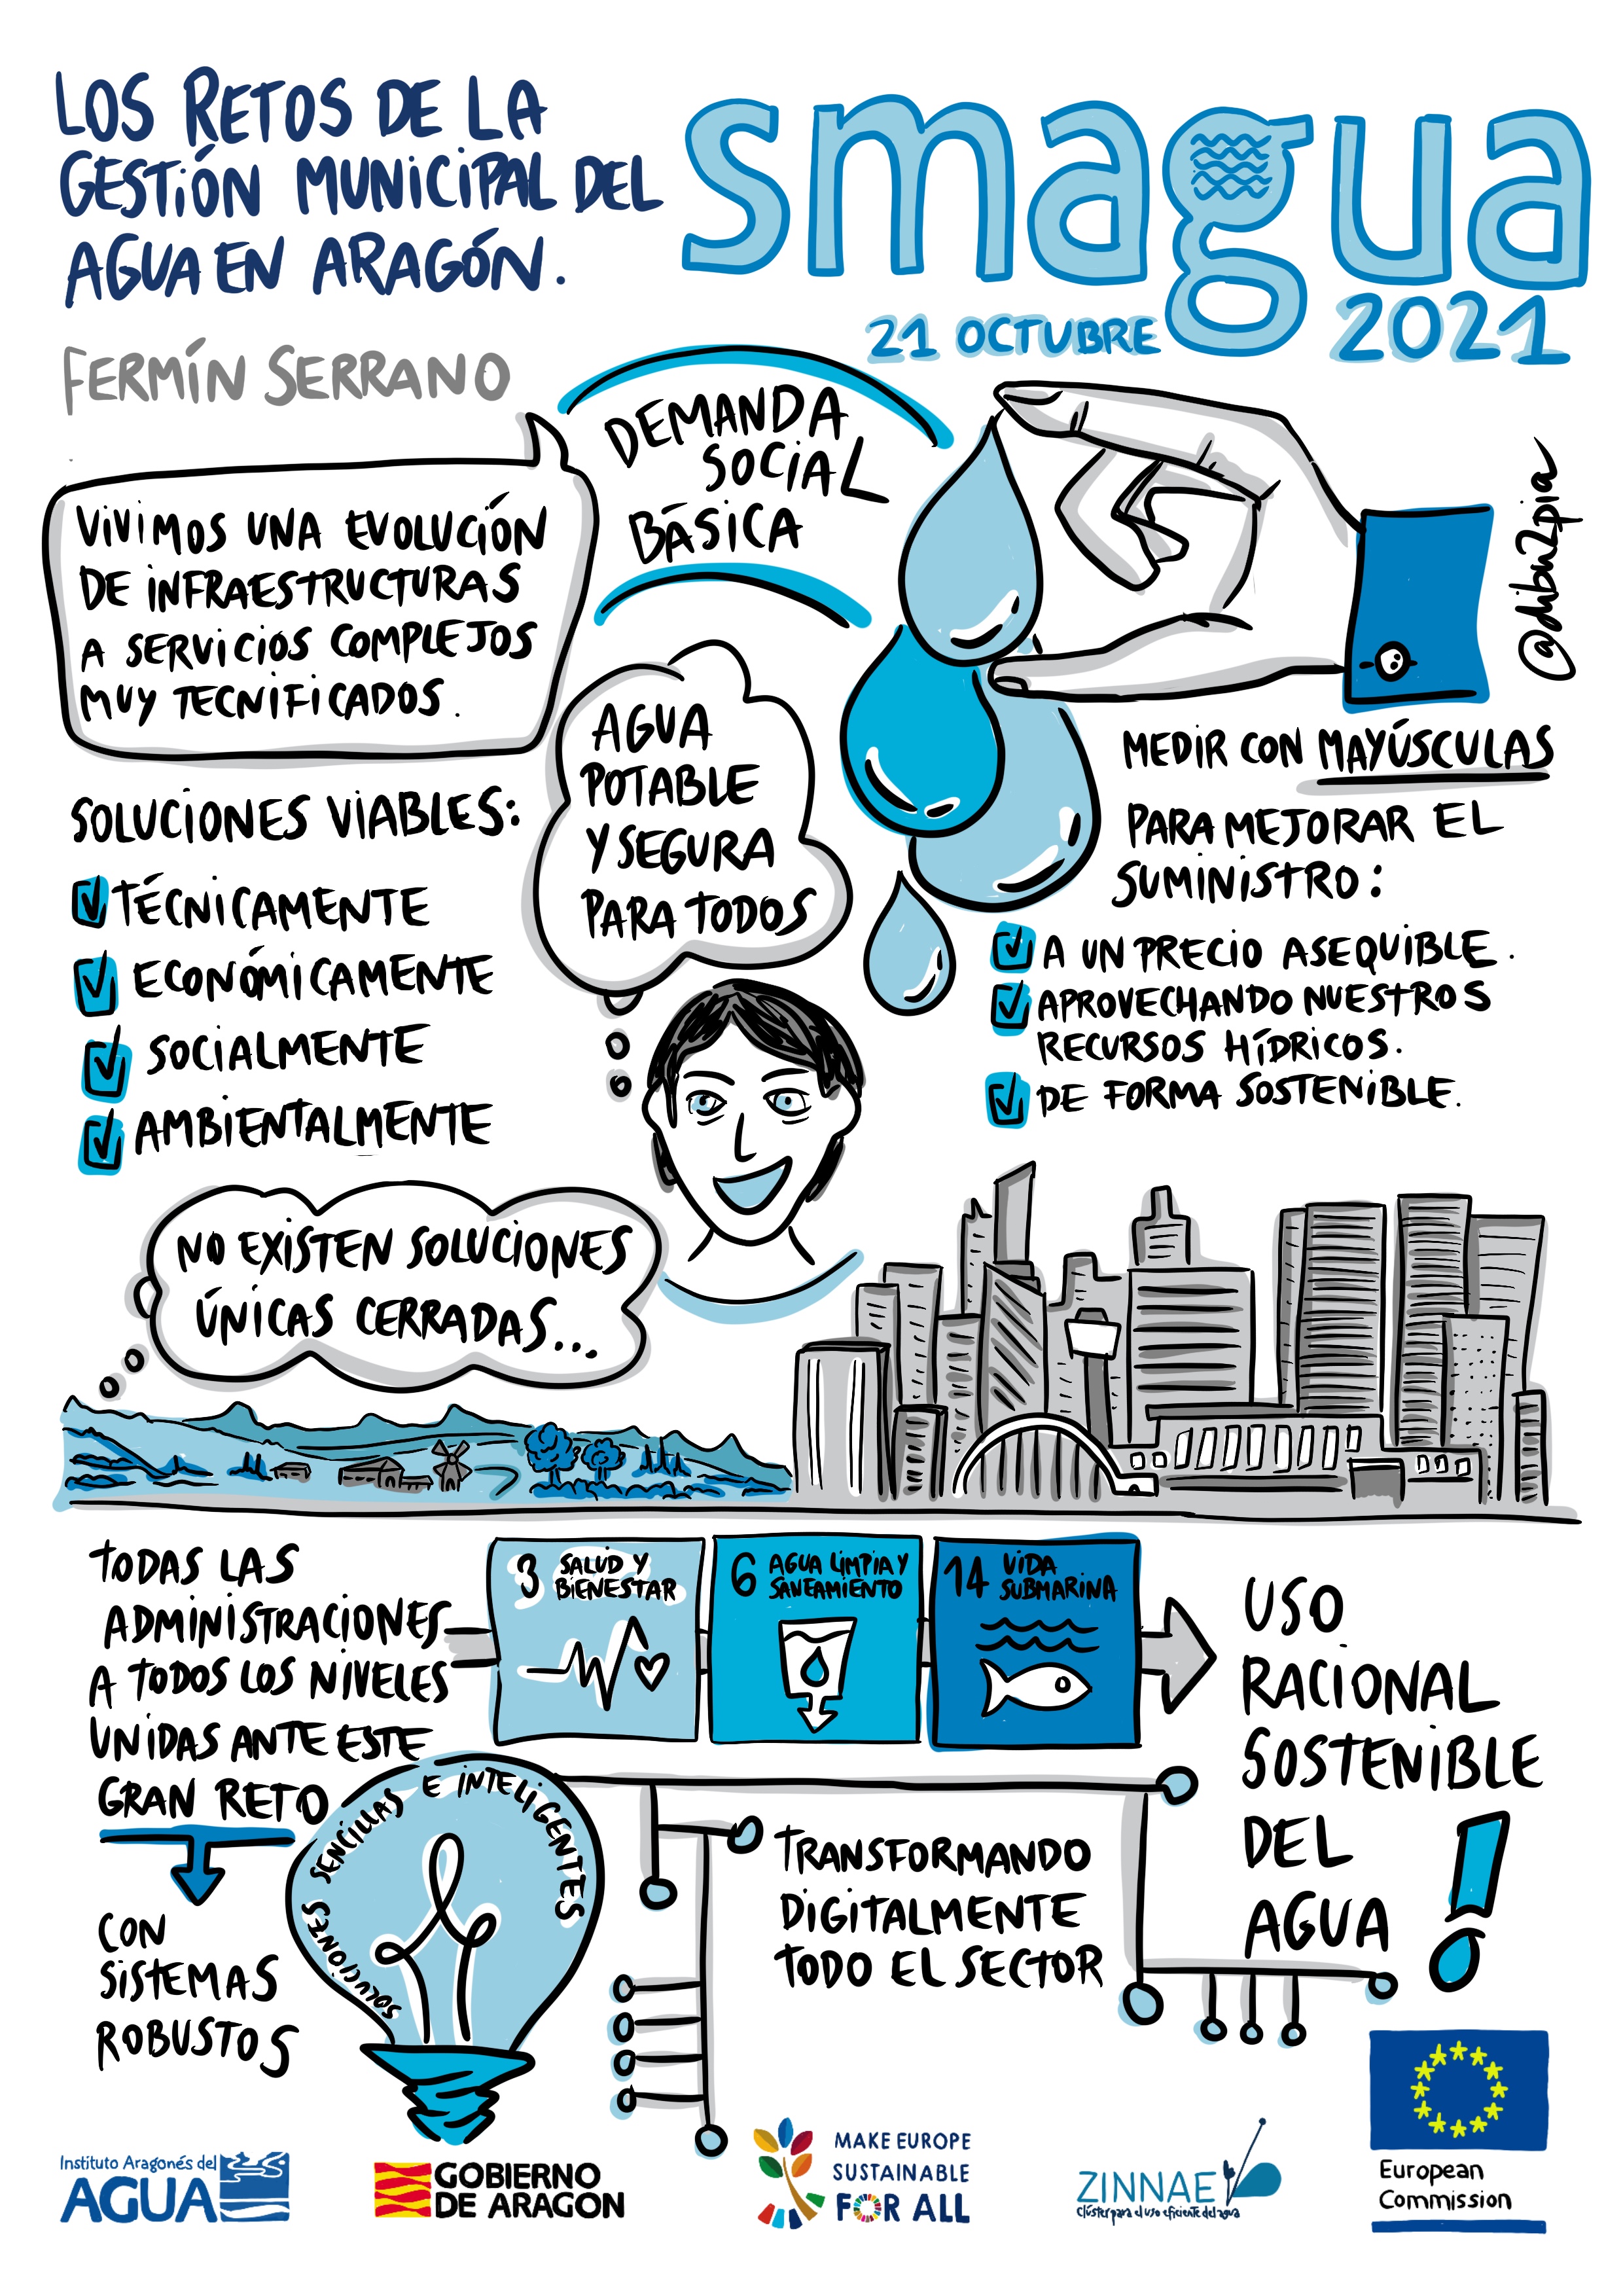 LOS RETOS DE LA
GESTIÓN MUNICIPAL DEL
AGUA EN ARAGÓN.
smagua
21 OCTUBRE 2021
FERMÍN SERRANO
DEMANDA
SOCIAL
BÁSICA
@dibu2pia
VIVIMOS UNA EVOLUCIÓN
DE INFRAESTRUCTURAS
A SERVICIOS COMPLEJOS
MUY TECNIFICADOS.
AGUA
POTABLE
Y SEGURA
PARA TODOS
MEDIR CON MAYÚSCULAS
PARA MEJORAR EL
SUMINISTRO:
A UN PRECIO ASEQUIBLE.
APROVECHANDO NUESTROS
RECURSOS HÍDRICOS.
DE FORMA SOSTENIBLE.
SOLUCIONES VIABLES:
TÉCNICAMENTE
ECONÓMICAMENTE
SOCIALMENTE
AMBIENTALMENTE
NO EXISTEN SOLUCIONES
ÚNICAS CERRADAS...
TODAS LAS
ADMINISTRACIONES
A TODOS LOS NIVELES
UNIDAS ANTE ESTE
GRAN RETO
3 SALUD Y
BIENESTAR
6 AGUA LIMPIA Y
SANEAMIENTO
14 VIDA
SUBMARINA
USO
RACIONAL
SOSTENIBLE
DEL
AGUA
CON
SISTEMAS
ROBUSTOS
SOLUCIONES SENCILLAS E INTELIGENTES
TRANSFORMANDO
DIGITALMENTE
TODO EL SECTOR
Instituto Aragonés del
AGUA
GOBIERNO
DE ARAGON
MAKE EUROPE
SUSTAINABLE
FOR ALL
ZINNAE
Clúster para el uso eficiente del agua
European
Commission